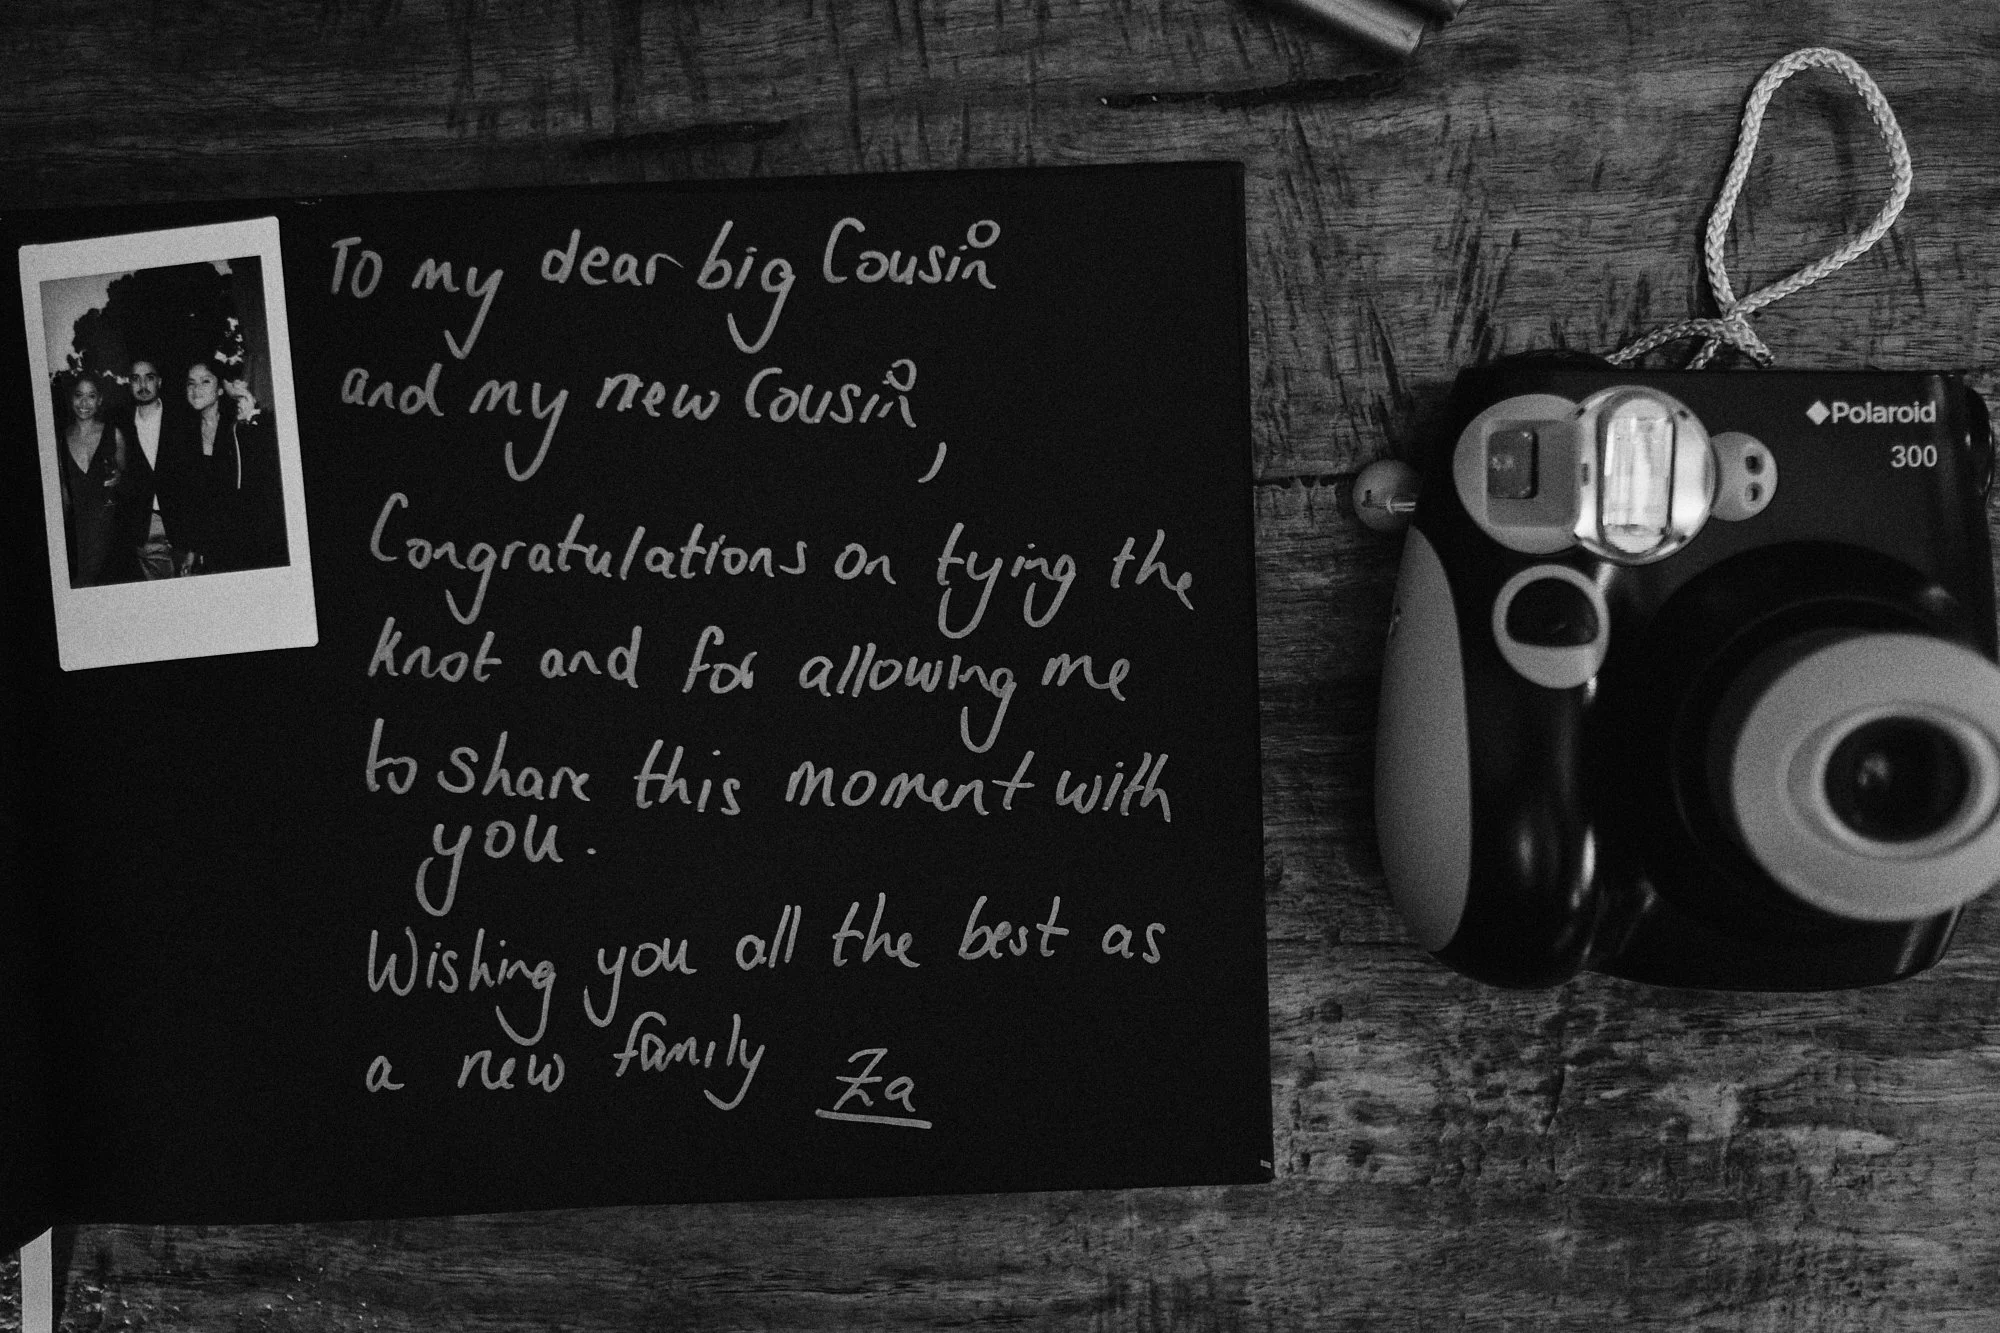 To my dear big Cousin
and my new Cousin,
Congratulations on tying the
knot and for allowing me
to share this moment with
you.
Wishing you all the best as
a new family Za
Polaroid
300